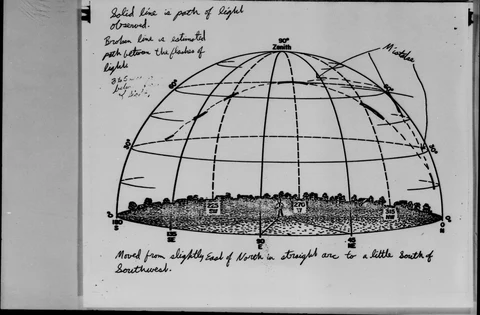 Solid line is path of light
observed.
Broken line is estimated
path between the flashes of
lights
Mistake
90°
Zenith
60°
60°
30°
30°
225
SW
270
W
0
180
S
135
SE
90
E
45
NE
0
N
Moved from slightly East of North in straight arc to a little South of
Southwest.